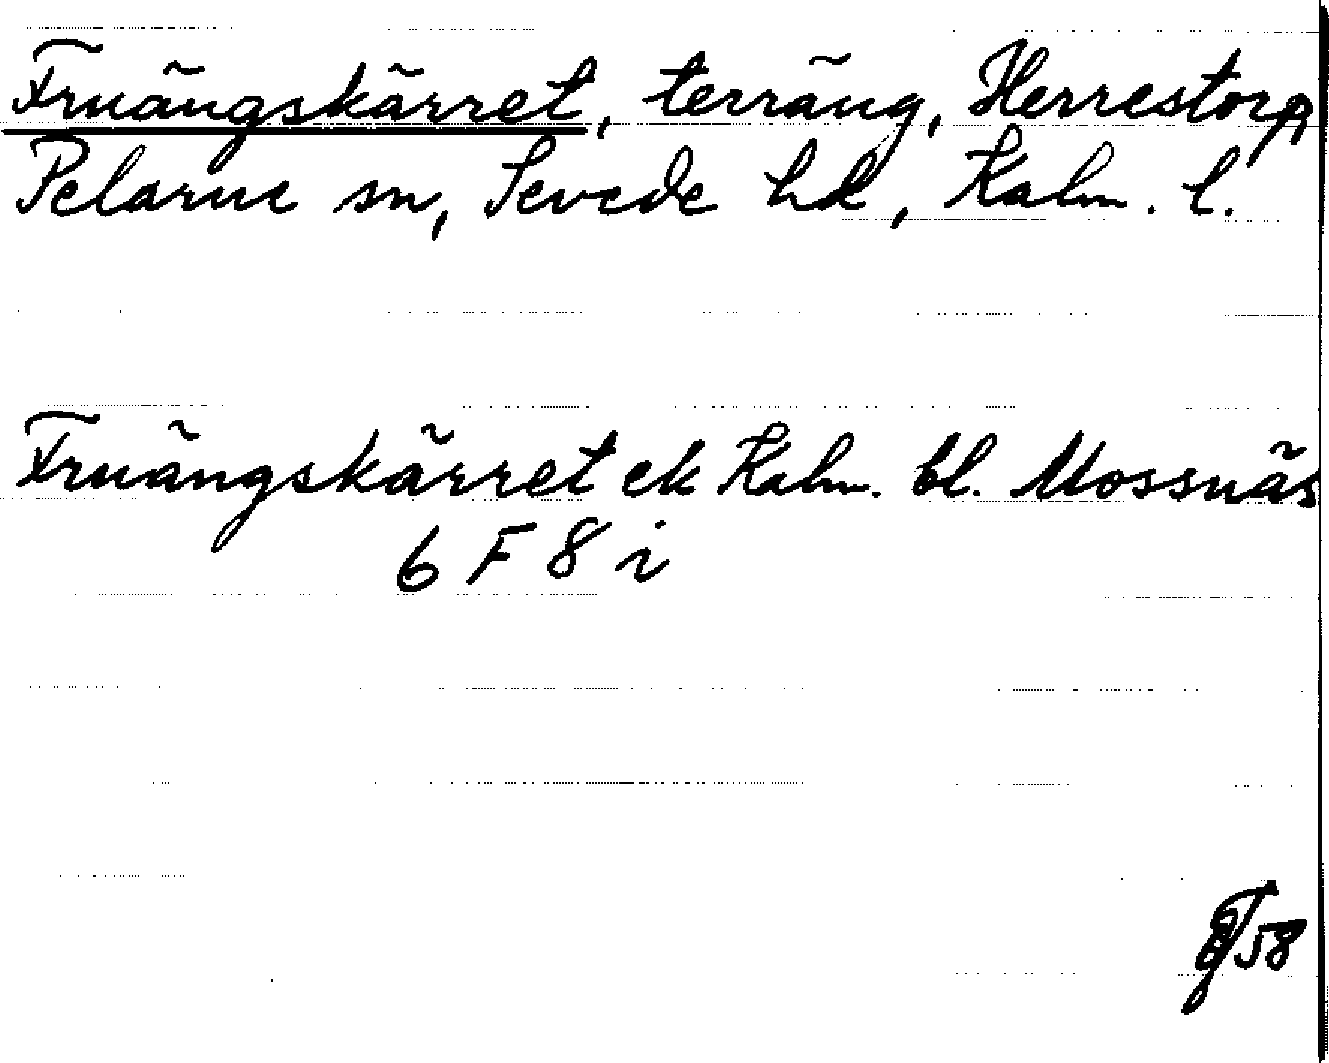 Fruängskärret, terräng, Herrestorp
Pelarne sn, Sevede hd, Kalm. l.
Fruängskärret ek Kalm. bl. Mossnäs
6 F 8 i
58